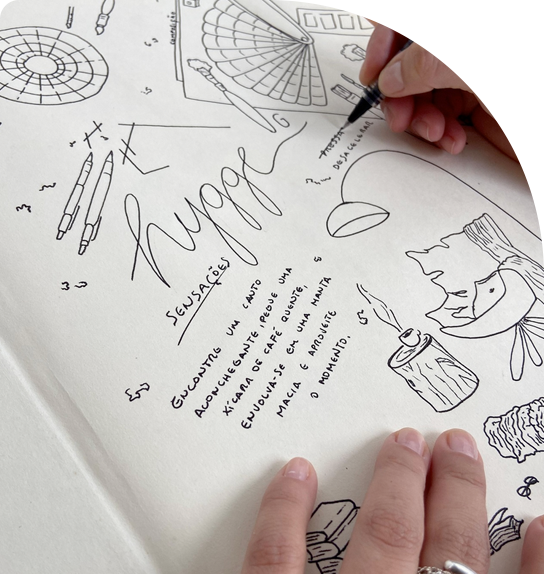 COMPOSIÇÃO
PRESSA
DESACELERAR
hygge
SENSAÇÕES
ENCONTRE UM CANTO
ACONCHEGANTE, PEGUE UMA
XÍCARA DE CAFÉ QUENTE,
ENVOLVA-SE EM UMA MANTA
MACIA E APROVEITE
O MOMENTO.